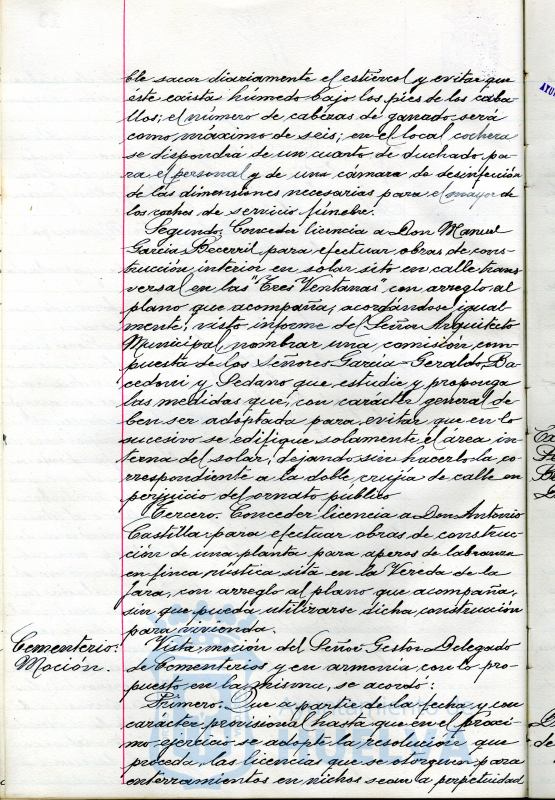 ble sacar diariamente el estiércol y evitar que
éste exista húmedo bajo los pies de los caba-
llos; el número de cabezas de ganado será
como máximo de seis; en el local cochera
se dispondrá de un cuarto de duchado pa-
ra el personal y de una cámara de desinfección
de las dimensiones necesarias para el mayor de
los coches de servicio fúnebre.
Segundo. Conceder licencia a Don Manuel
García Becerril para efectuar obras de cons-
trucción interior en solar sito en calle trans
versal en las "Tres Ventanas" con arreglo al
plano que acompaña, acordándose igual-
mente, visto informe del Señor Arquitecto
Municipal nombrar una comisión com-
puesta de los Señores García-Geraldo, Ba-
cedoni y Sedano que estudie y proponga
las medidas que, con carácter general de
ben ser adoptada para evitar que en lo
sucesivo se edifique solamente el área in-
terna del solar, dejando sin hacerlo la co-
rrespondiente a la doble crujía de calle en
perjuicio del ornato público
Tercero. Conceder licencia a Don Antonio
Castilla para efectuar obras de construc-
ción de una planta para aperos de labranza
en finca rústica sita en la Vereda de la
Jara, con arreglo al plano que acompaña,
sin que pueda utilizarse dicha construcción
para vivienda.
Cementerio:
Moción.
Vista moción del Señor Gestor Delegado
de Cementerios y en armonía con lo pro-
puesto en la misma, se acordó:
Primero. Que a partir de la fecha y con
carácter provisional hasta que en el próxi-
mo ejercicio se adopte la resolución que
proceda, las licencias que se otorguen para
enterramientos en nichos sean a perpetuidad
HUELVA